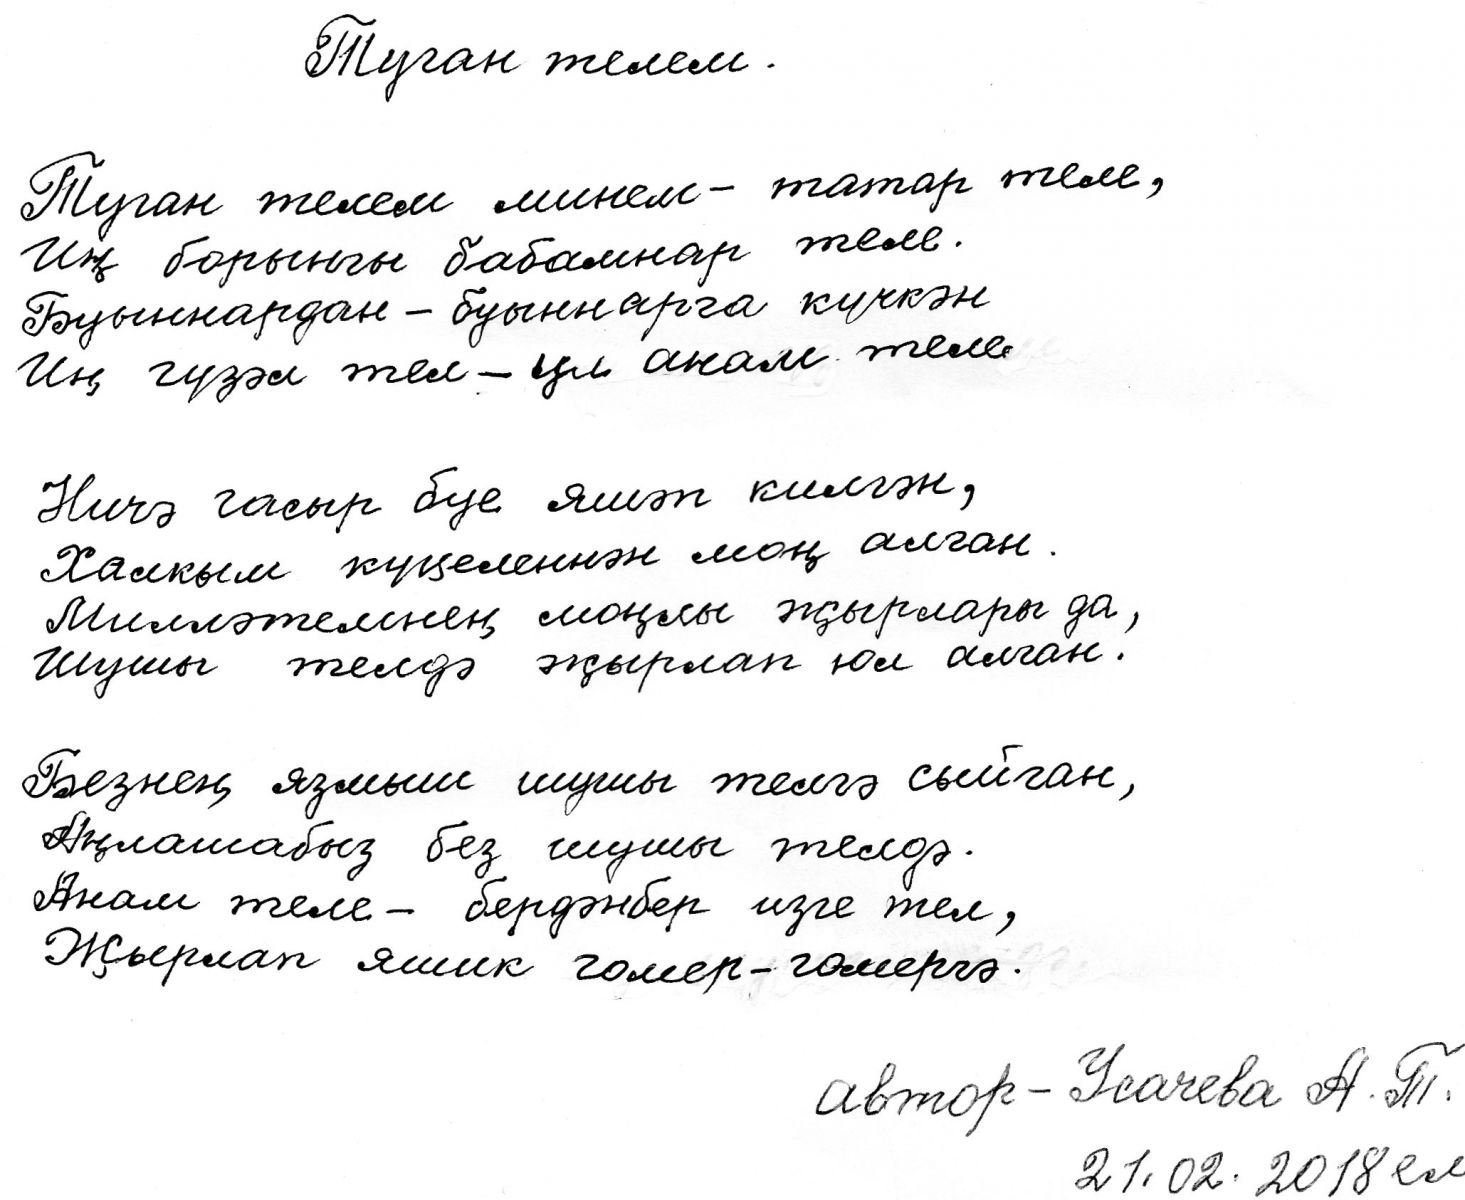 Туган телем.
Туган телем минем – татар теле,
Иң борынгы бабамнар теле.
Буыннардан – буыннарга күчкән
Иң гүзәл тел – ул анам теле
Ничә гасыр буе яшәп килгән,
Халкым күңеленнән моң алган.
Милләтемнең моңлы җырлары да,
Шушы телдә җырлап юл алган.
Безнең язмыш шушы телгә сыйган,
Аңлашабыз без шушы телдә.
Анам теле – бердәнбер изге тел,
Җырлап яшик гомер – гомергә.
автор – Усачева А.Т.
21.02.2018 ел